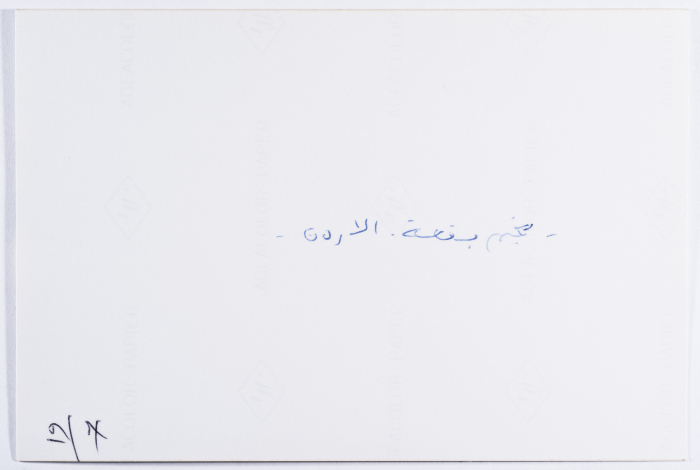 - مخيم بقعة. الاردن -
19/7